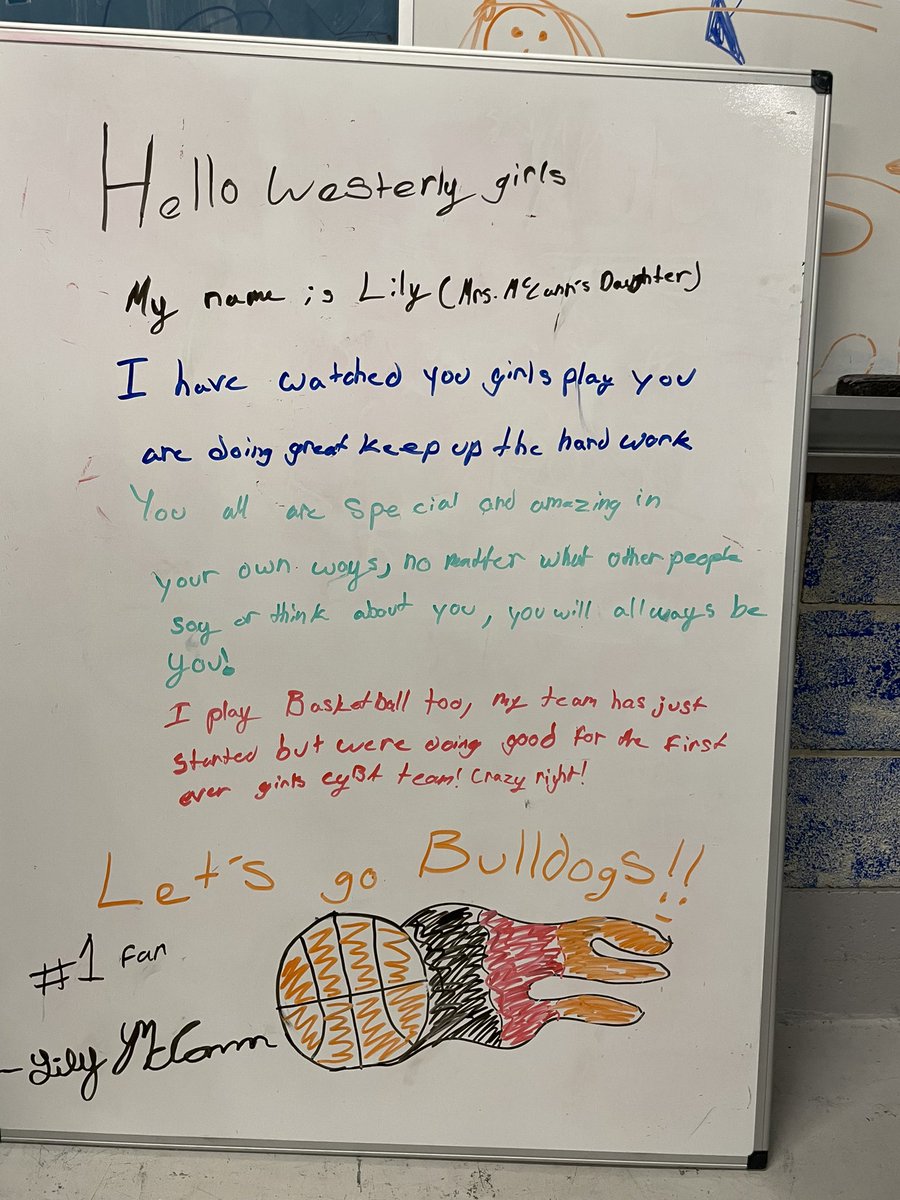 Hello Westerly girls
My name is Lily (Mrs. McCann's Daughter)
I have watched you girls play you
are doing great keep up the hard work
You all are special and amazing in
your own ways, no matter what other people
say or think about you, you will allways be
you!
I play Basketball too, my team has just
started but were doing good for the first
ever girls cyBA team! Crazy right!
Let's go Bulldogs!!
#1 Fan
- Lily McCann